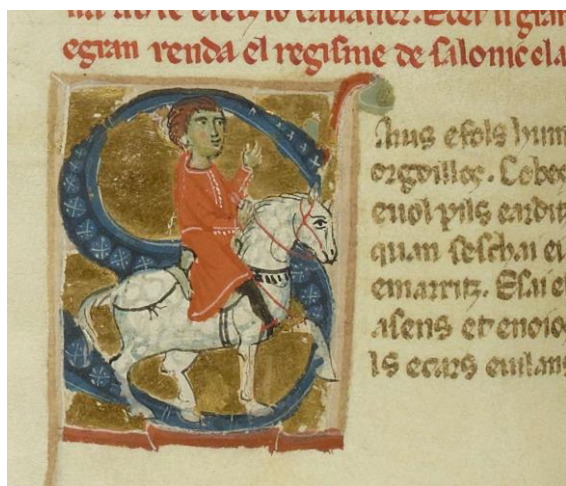 cauallier. Et el li gran
egran renda el regisme de salonic el a
S
auis efols hum
orgoillos. Cobe
euol pils eardit
quan seschai ei
emarritz. Esai e
asens et enoio
ls ecars euilans